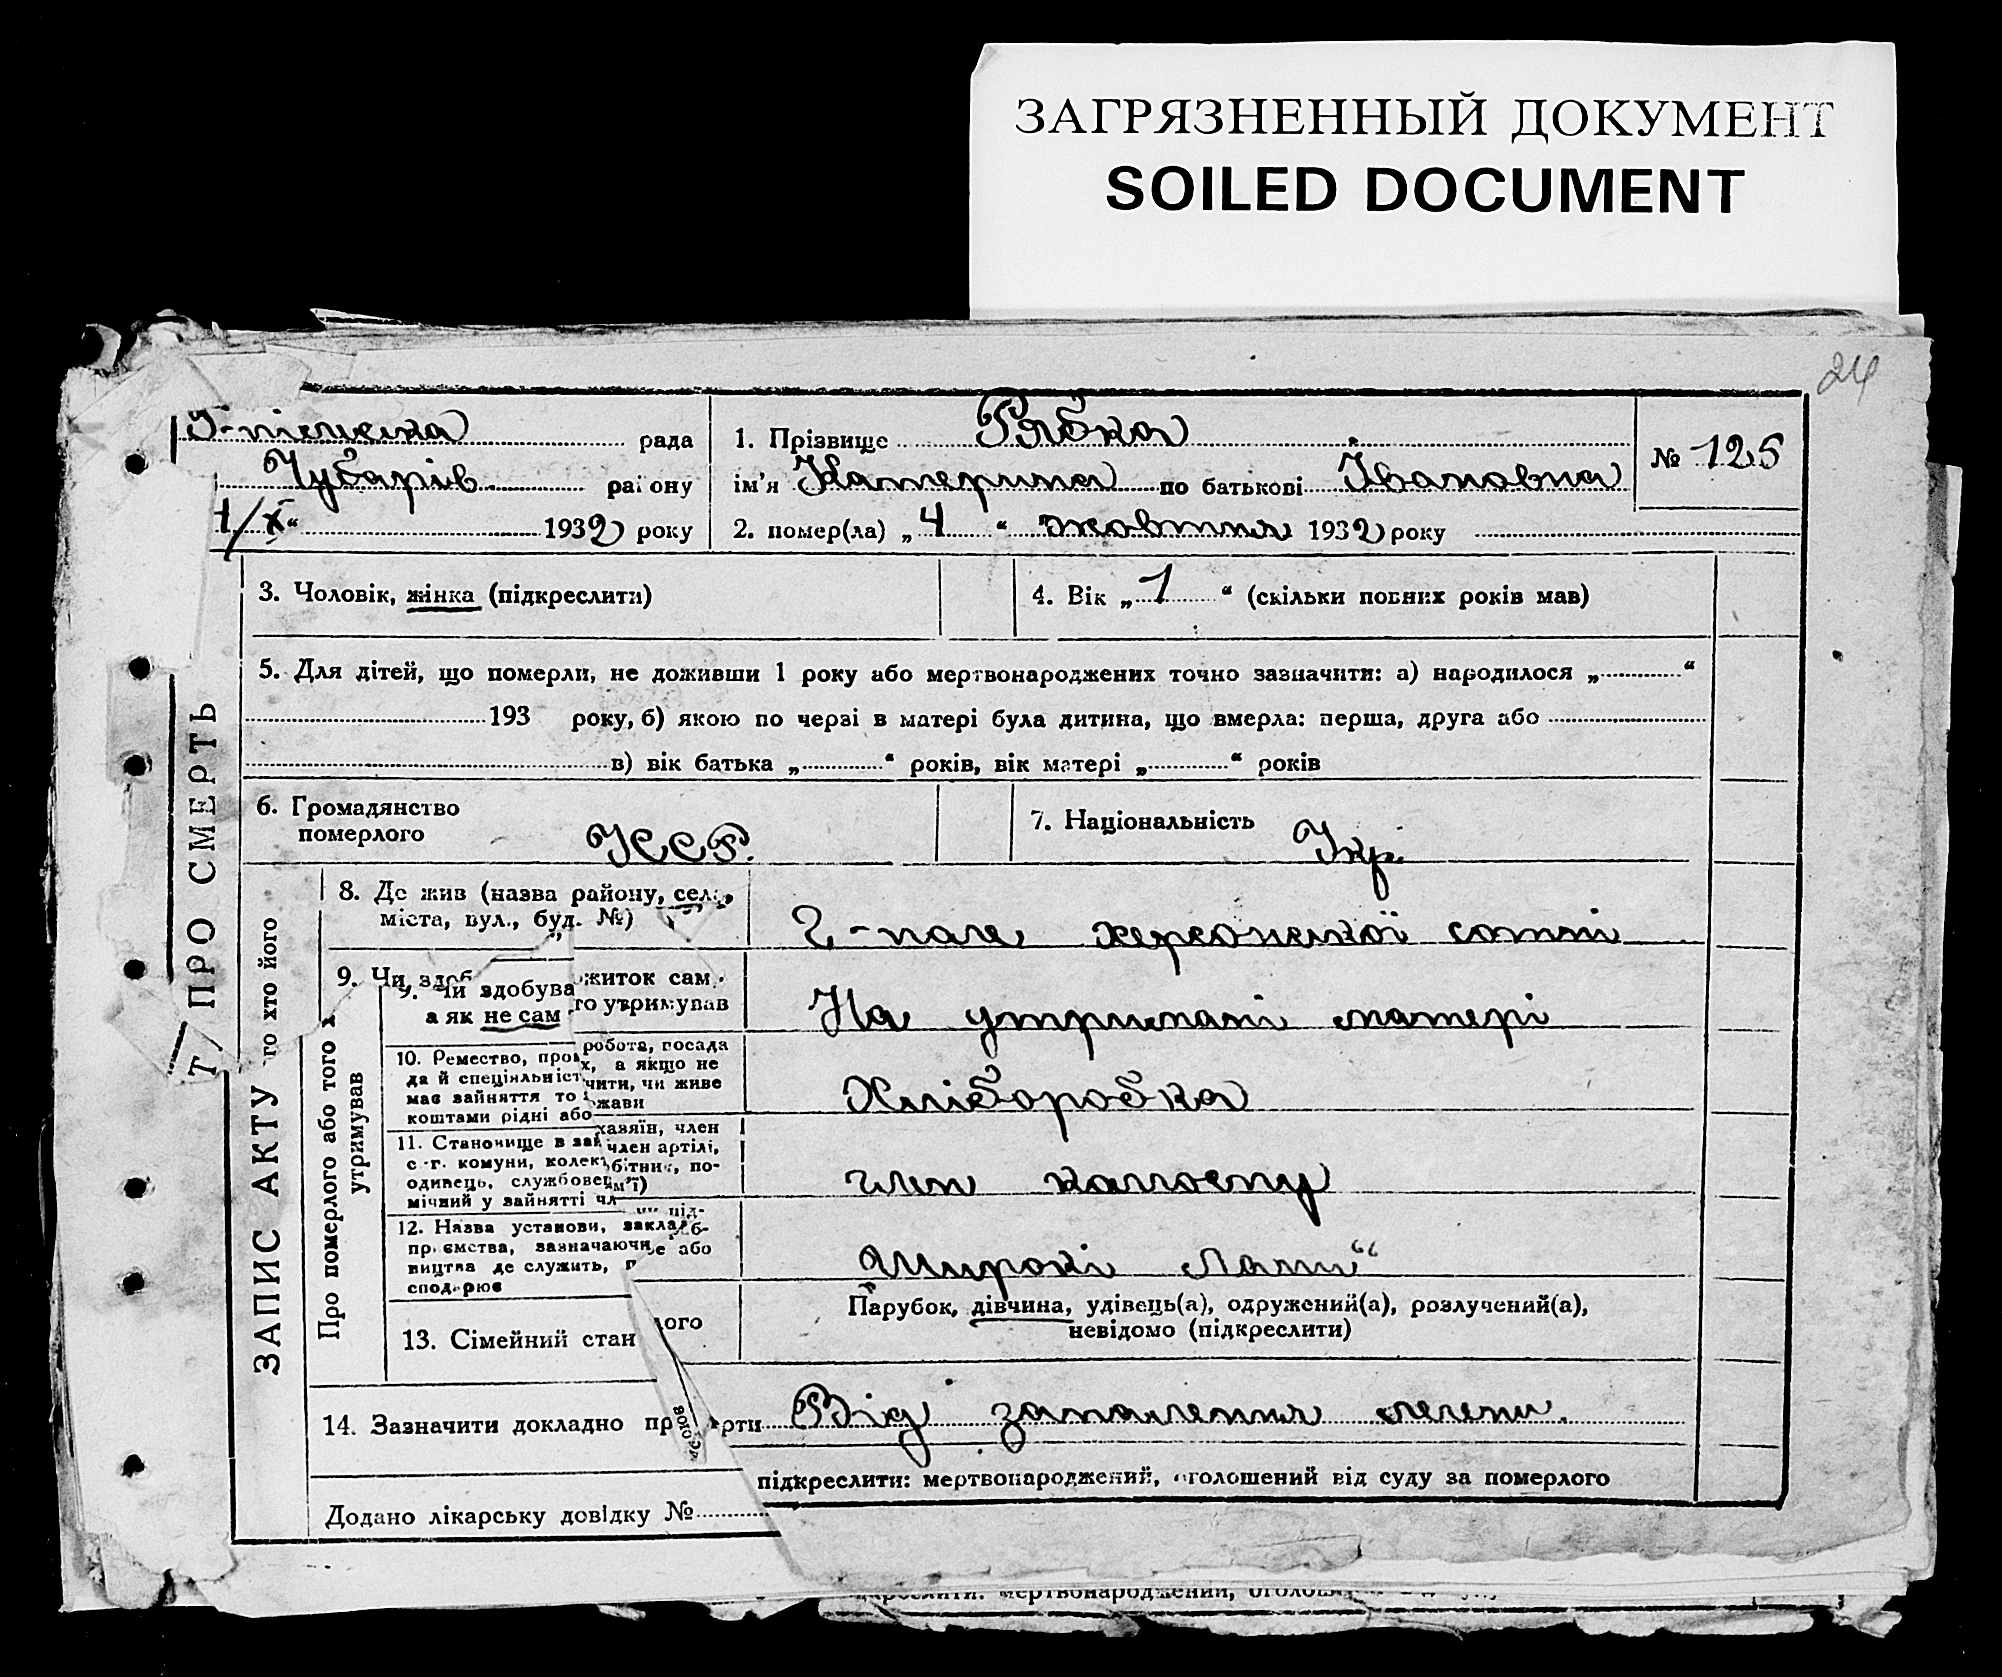 ЗАГРЯЗНЕННЫЙ ДОКУМЕНТ
SOILED DOCUMENT
24
рада
Чубарів району
1/X “ 1932 року
1. Прізвище Рябка
ім’я Катерина по батькові Івановна
2. помер(ла) „4“ жовтня 1932 року
№ 125
ЗАПИС АКТУ ПРО СМЕРТЬ
3. Чоловік, жінка (підкреслити)
4. Вік „1“ (скільки повних років мав)
5. Для дітей, що померли, не доживши 1 року або мертвонароджених точно зазначити: а) народилося „ “
193 року, б) якою по черзі в матері була дитина, що вмерла: перша, друга або
в) вік батька „ “ років, вік матері „ “ років
6. Громадянство
померлого УССР.
7. Національність Укр.
Про померлого або того
го хто його
утримував
8. Де жив (назва району, села,
міста, вул., буд. №)
Г-поле херсонської сотні
9. Чи здоб
9. Чи здобува житок сам
а як не сам го утримував
На утримані матері
10. Ремество, про робота, посада
да й спеціяльніст х, а якщо не
має зайняття то чити, чи живе
коштами рідні або жави
Хліборобка
11. Становище в зай хазяїн, член
с.-г. комуни, колек член артілі,
одинець, службовец бітник, по-
мічний у зайнятті чл м’ї)
член колгоспу
12. Назва установи, заклад
приємства, зазначаючи е або
ництва де служить, п
сподарює
Широкі Лани“
13. Сімейний стан ого
Парубок, дівчина, удівець(а), одружений(а), розлучений(а),
невідомо (підкреслити)
14. Зазначити докладно пр рти Від запалення легени.
підкреслити: мертвонароджений, оголошений від суду за померлого
Додано лікарську довідку №
мертвонароджений,